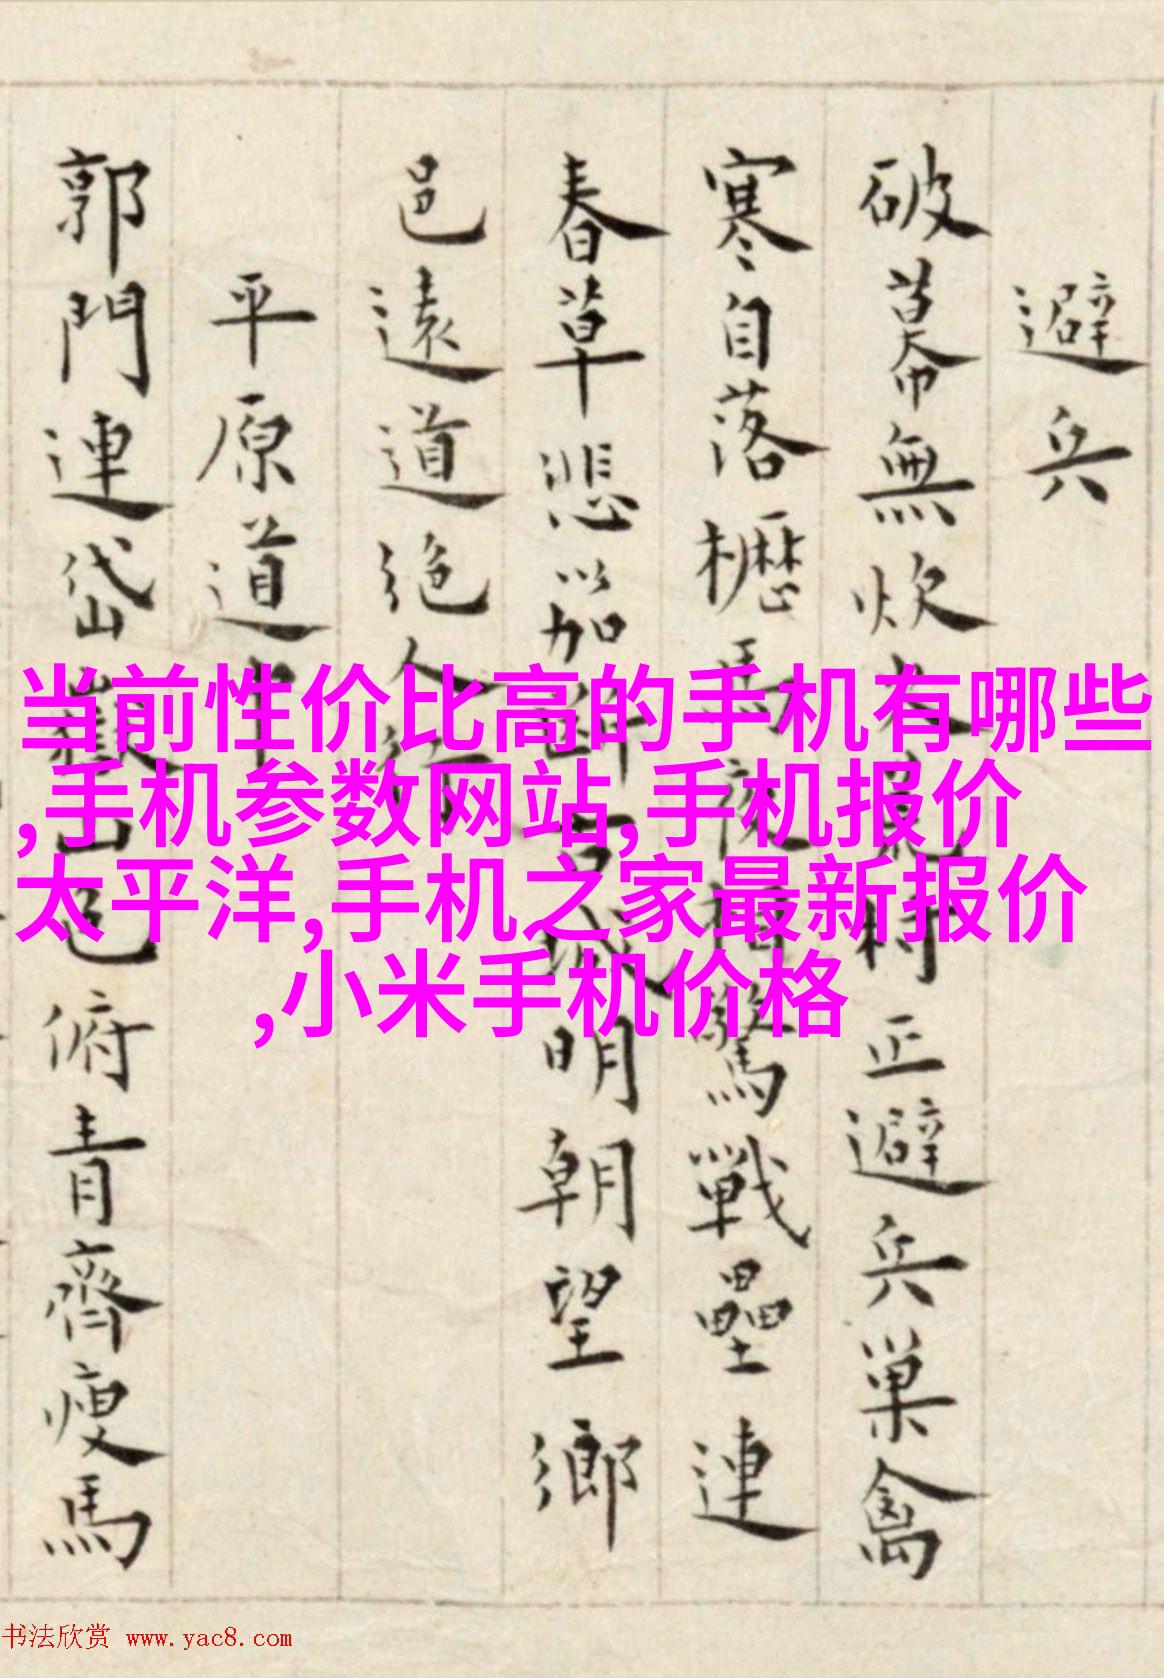 避兵
破幕無炊
村正避兵巢禽
寒自落櫪馬
驚戰壘連
春草悲笳
明朝望鄉
邑遠道絶人
平原道中
郭門連岱
色俯青齊瘦馬
当前性价比高的手机有哪些
,手机参数网站,手机报价
太平洋,手机之家最新报价
,小米手机价格
书法欣赏 www.yac8.com